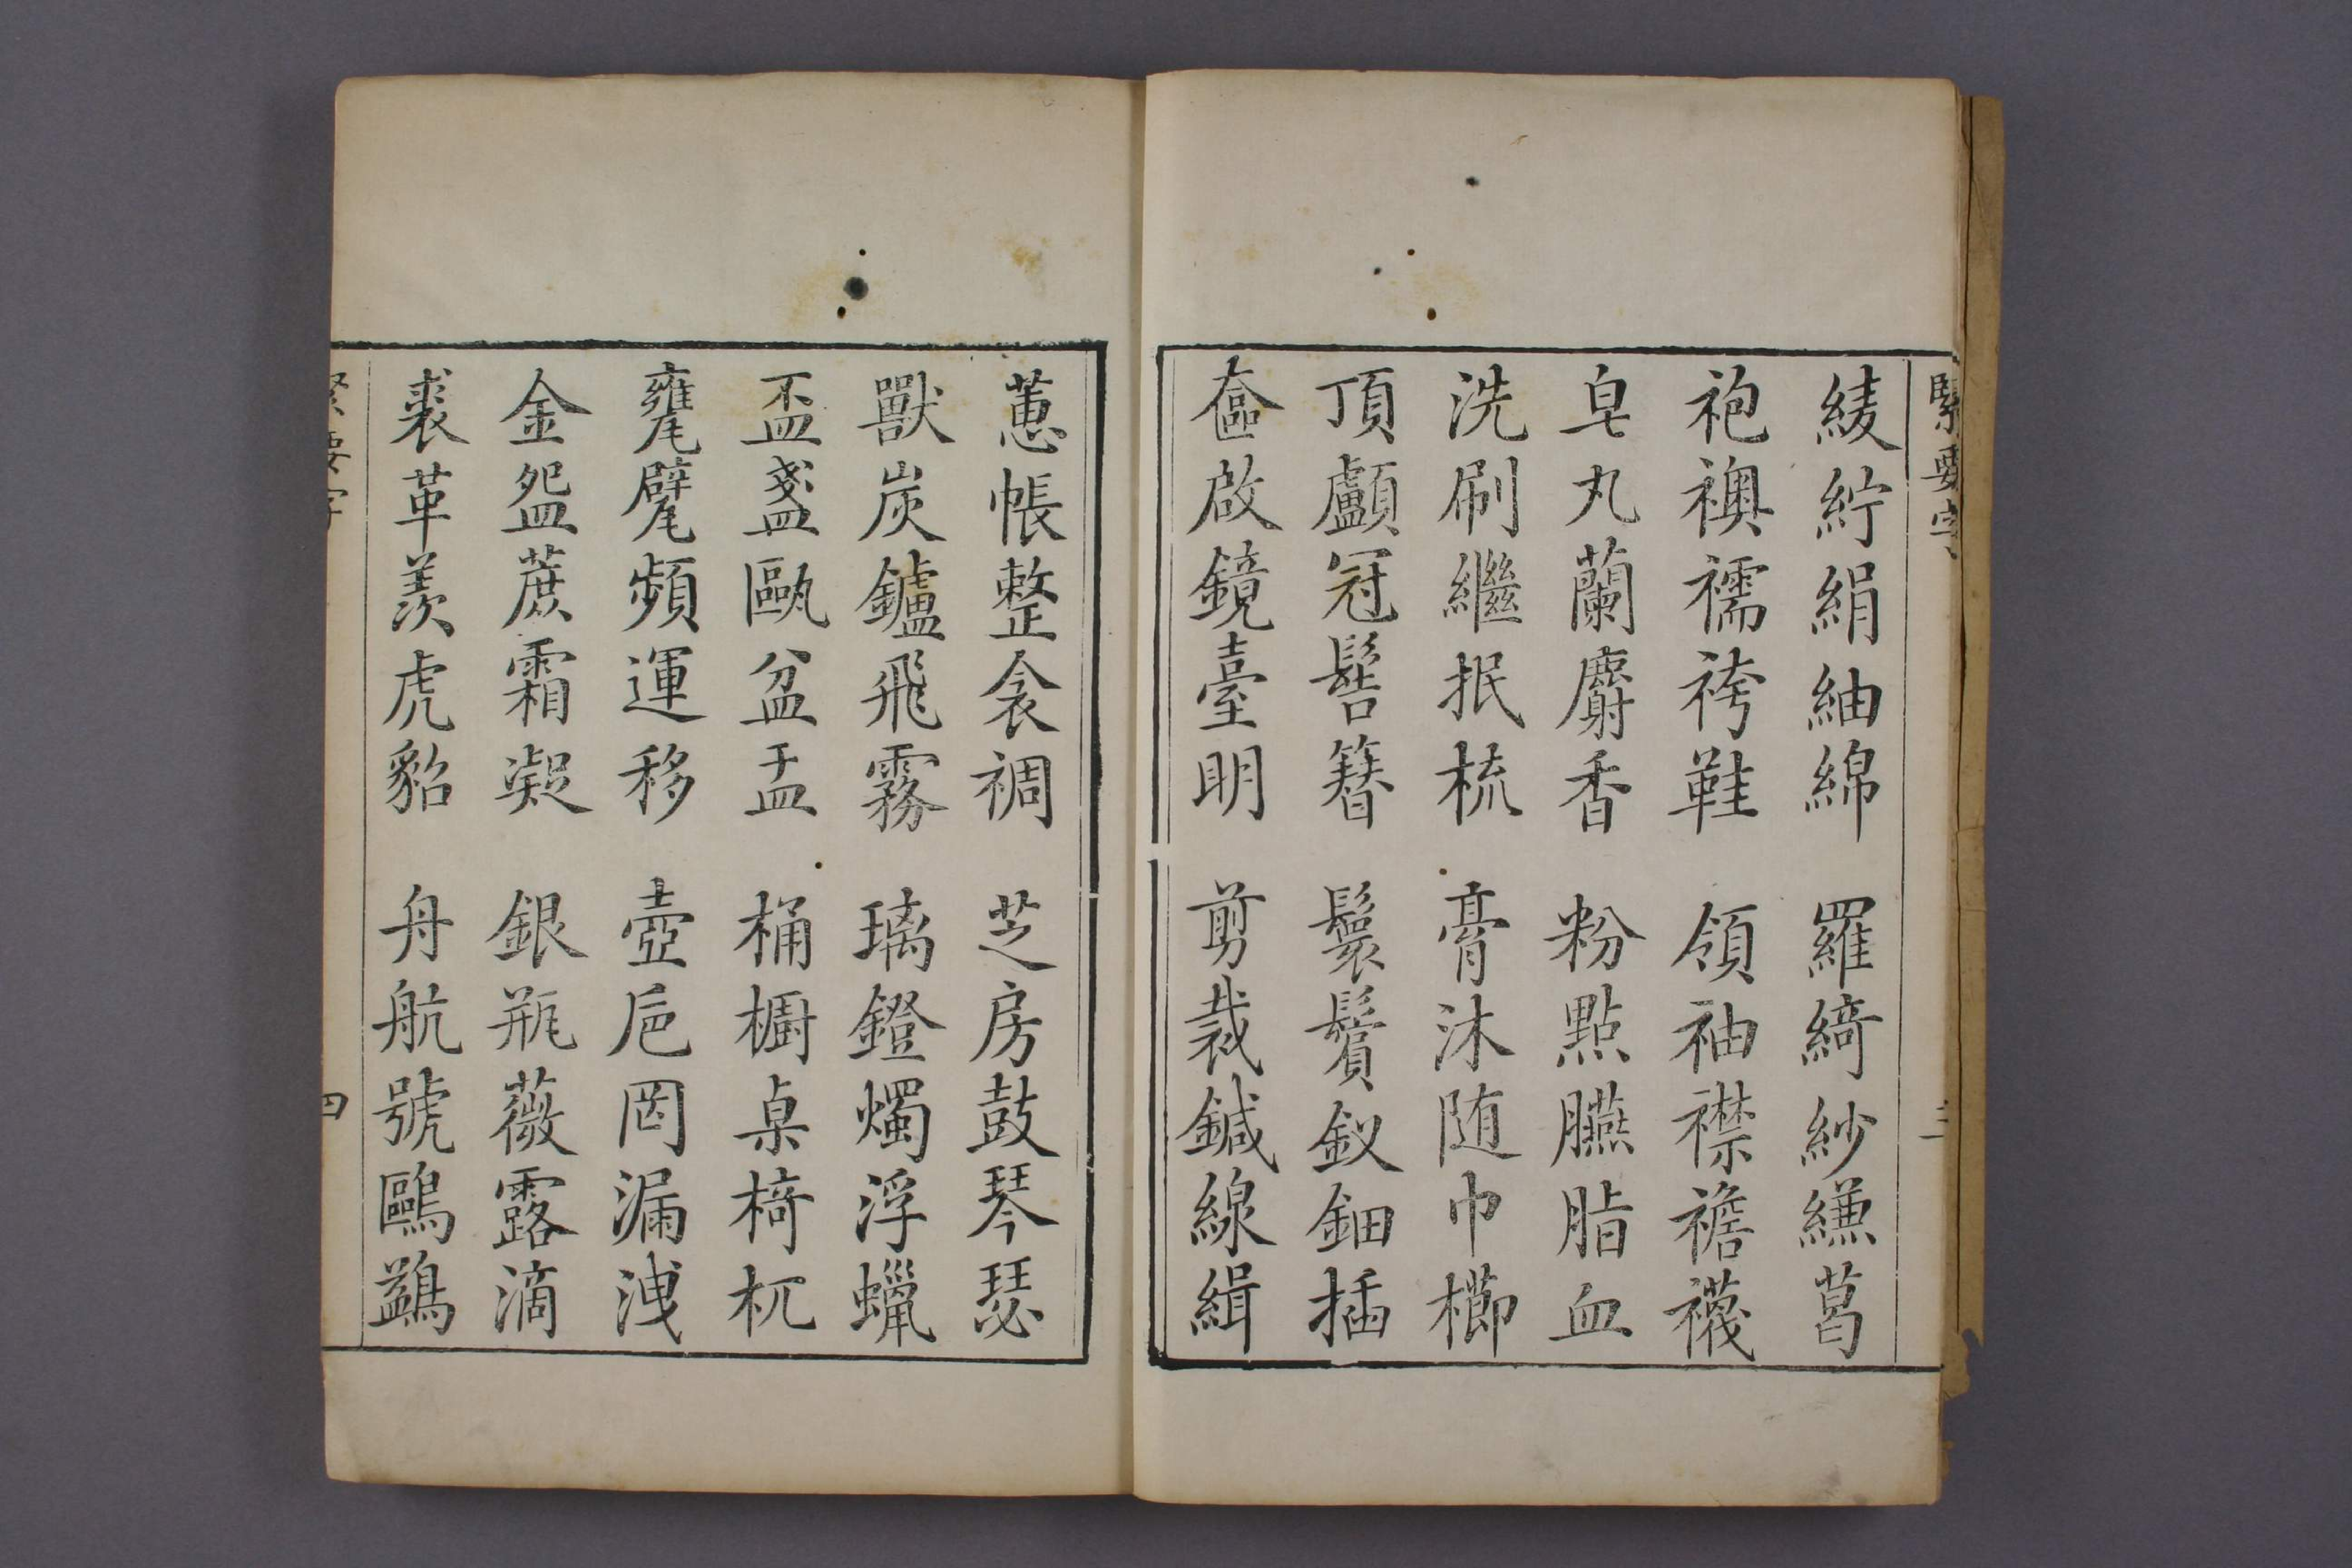 緊要字
三
綾紵絹紬綿　羅綺紗縑葛
袍襖襦袴鞋　領袖襟襜襪
皂丸蘭麝香　粉點臙脂血
洗刷繼抿梳　膏沐随巾櫛
頂顱冠髻簪　鬟鬢釵鈿插
奩啟鏡臺明　剪裁鍼線緝
蕙帳整衾裯　芝房鼓琴瑟
獸炭鑪飛霧　璃鐙燭浮蠟
盃盞甌盆盂　桶櫥桌椅杌
甕甓頻運移　壺卮罔漏洩
金盌蔗霜凝　銀瓶薇露滴
裘革羨虎貂　舟航號鷗鷁
緊要字
四